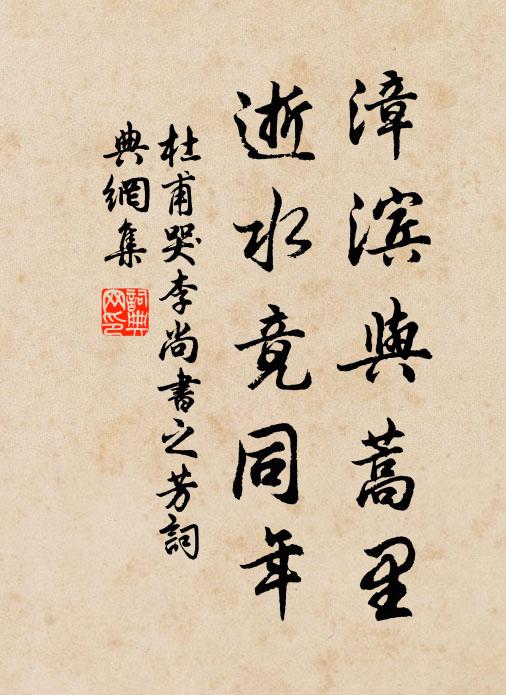 漳滨與蒿里
逝水竟同年
杜甫哭李尚書之芳詞
典網集
詞典网印